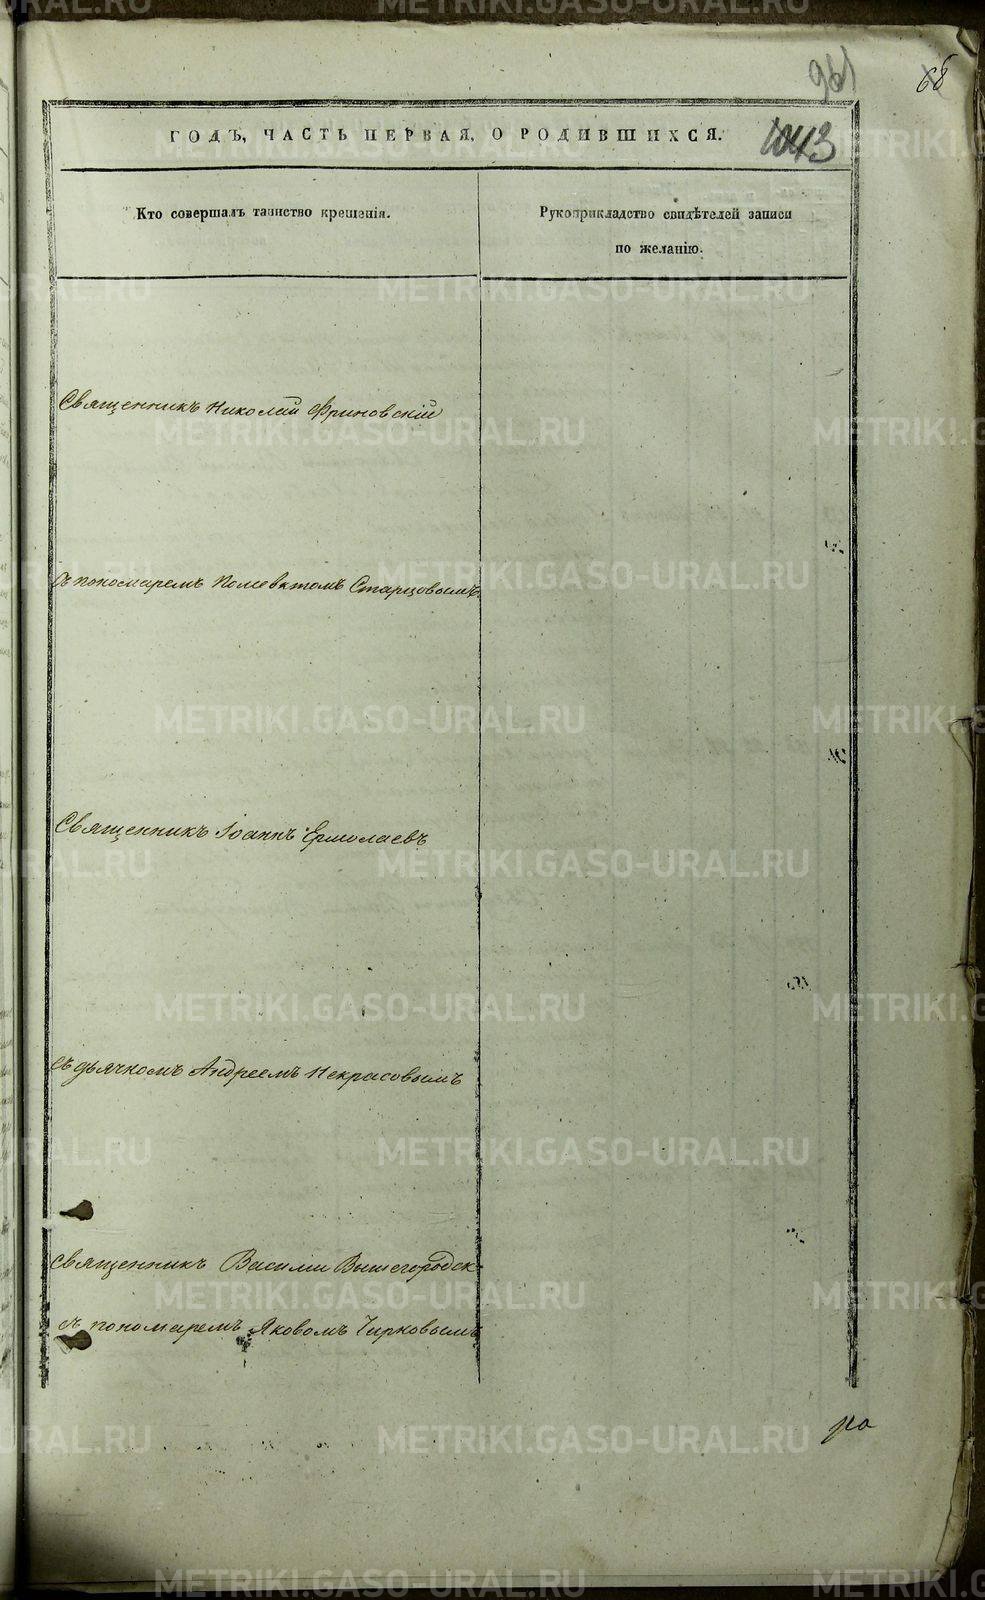 961
68
ГОДЪ, ЧАСТЬ ПЕРВАЯ, О РОДИВШИХСЯ.
1043
Кто совершалъ таинство крещенія.
Рукоприкладство свидѣтелей записи
по желанію.
Священникъ Николай Фриновскій
съ пономаремъ Полиевктомъ Старцовымъ
Священникъ Іоаннъ Ермолаевъ
съ дьячкомъ Андреемъ Некрасовымъ
Священникъ Василій Вышегородск
съ пономаремъ Яковомъ Чирковымъ
METRIKI.GASO-URAL.RU